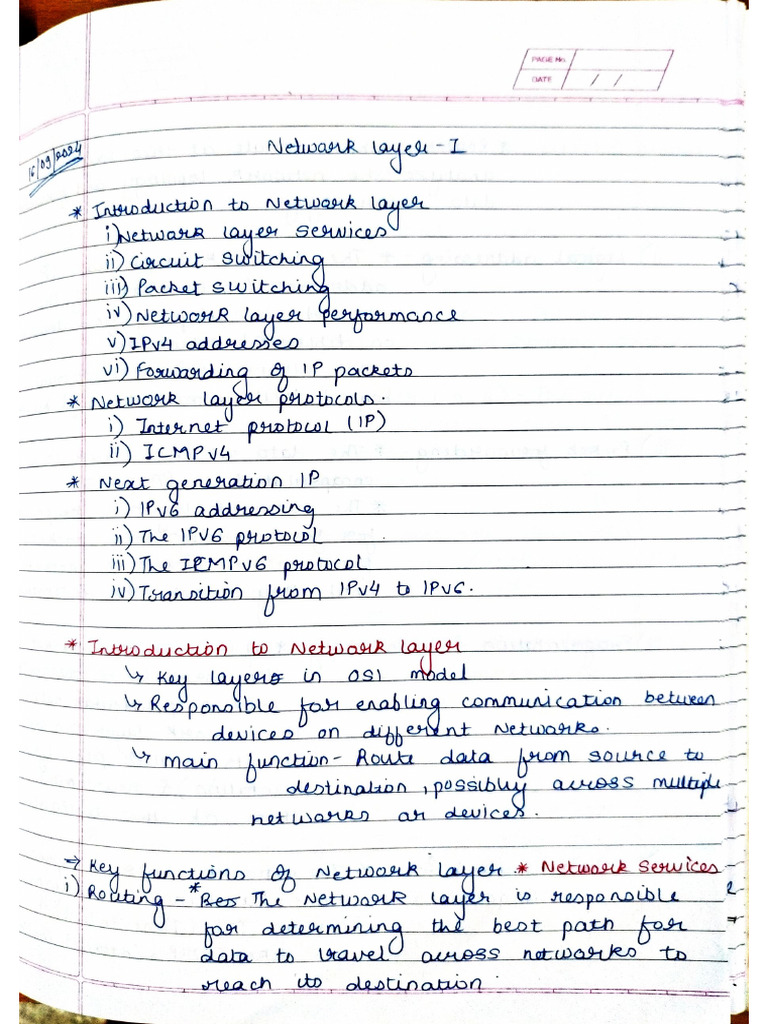 PAGE No.
DATE / /
16/09/2024
Network layer - I
* Introduction to Network layer
i) Network layer services
ii) Circuit switching
iii) Packet switching
iv) Network layer performance
v) IPv4 addresses
vi) Forwarding of IP packets
* Network layer protocols.
i) Internet protocol (IP)
ii) ICMPv4
* Next generation IP
i) IPv6 addressing
ii) The IPv6 protocol
iii) The ICMPv6 protocol
iv) Transition from IPv4 to IPv6.
* Introduction to Network layer
↳ Key layers in OSI model
↳ Responsible for enabling communication between
devices on different Networks.
↳ main function - Route data from source to
destination, possibly across multiple
networks or devices.
⇒ Key functions of Network layer * Network Services
i) Routing - * Res The Network layer is responsible
for determining the best path for
data to travel across networks to
reach its destination.